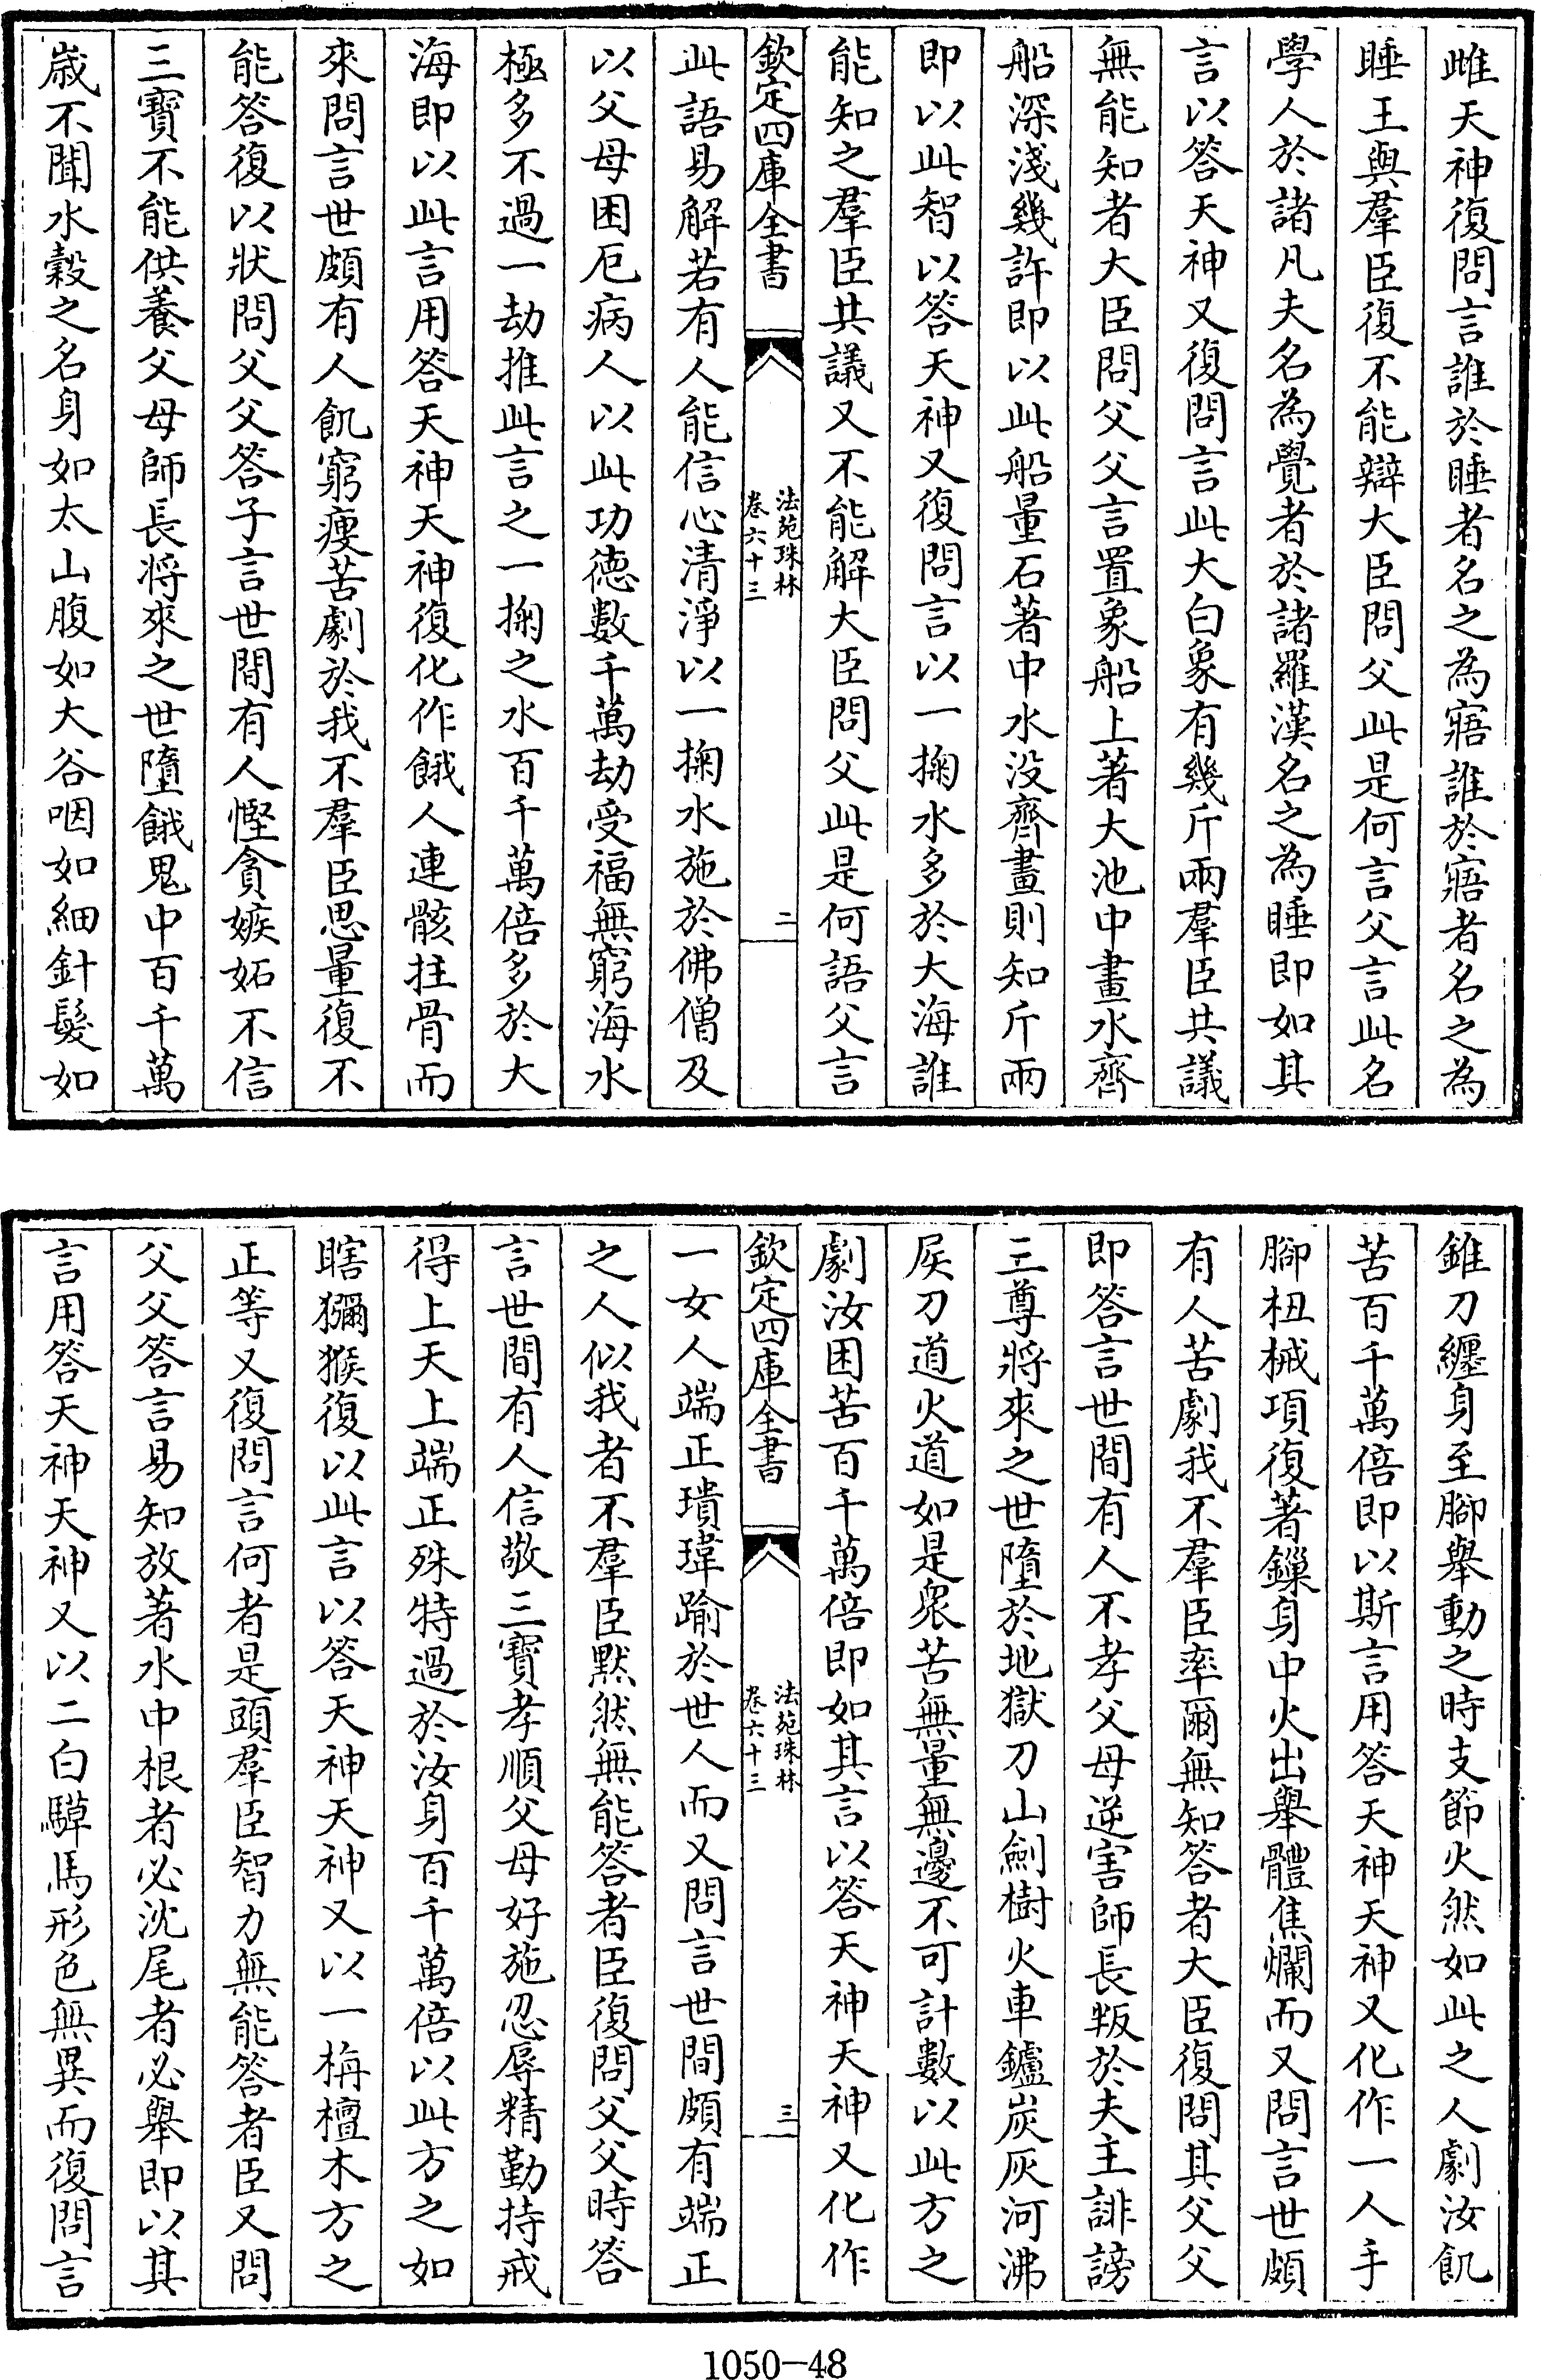 雌天神復問言誰於睡者名之為寤誰於寤者名之為
睡王與羣臣復不能辯大臣問父此是何言父言此名
學人於諸凡夫名為覺者於諸羅漢名之為睡即如其
言以答天神又復問言此大白象有幾斤兩羣臣共議
無能知者大臣問父父言置象船上著大池中畫水齊
船深淺幾許即以此船量石著中水没齊畫則知斤兩
即以此智以答天神又復問言以一掬水多於大海誰
能知之羣臣共議又不能解大臣問父此是何語父言
欽定四庫全書
法苑珠林
卷六十三
二
此語易解若有人能信心清淨以一掬水施於佛僧及
以父母困厄病人以此功德數千萬劫受福無窮海水
極多不過一劫推此言之一掬之水百千萬倍多於大
海即以此言用答天神天神復化作餓人連骸拄骨而
來問言世頗有人飢窮瘦苦劇於我不羣臣思量復不
能答復以狀問父父答子言世間有人慳貪嫉妬不信
三寶不能供養父母師長将來之世墮餓鬼中百千萬
歲不聞水穀之名身如太山腹如大谷咽如細針髮如
錐刀纏身至腳舉動之時支節火然如此之人劇汝飢
苦百千萬倍即以斯言用答天神天神又化作一人手
腳杻械項復著鏁身中火出舉體焦爛而又問言世頗
有人苦劇我不羣臣率爾無知答者大臣復問其父父
即答言世間有人不孝父母逆害師長叛於夫主誹謗
三尊將來之世墮於地獄刀山劍樹火車鑪炭灰河沸
屎刀道火道如是衆苦無量無邊不可計數以此方之
劇汝困苦百千萬倍即如其言以答天神天神又化作
欽定四庫全書
法苑珠林
卷六十三
三
一女人端正瓌瑋踰於世人而又問言世間頗有端正
之人似我者不羣臣默然無能答者臣復問父父時答
言世間有人信敬三寶孝順父母好施忍辱精勤持戒
得上天上端正殊特過於汝身百千萬倍以此方之如
瞎獼猴復以此言以答天神天神又以一栴檀木方之
正等又復問言何者是頭羣臣智力無能答者臣又問
父父答言易知放著水中根者必沈尾者必舉即以其
言用答天神天神又以二白騲馬形色無異而復問言
1050-48